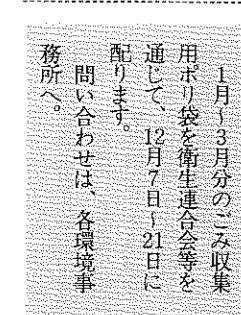 1月～3月分のごみ収集
用ポリ袋を衛生連合会等を
通じて、12月7日～21日に
配ります。
問い合わせは、各環境事
務所へ。